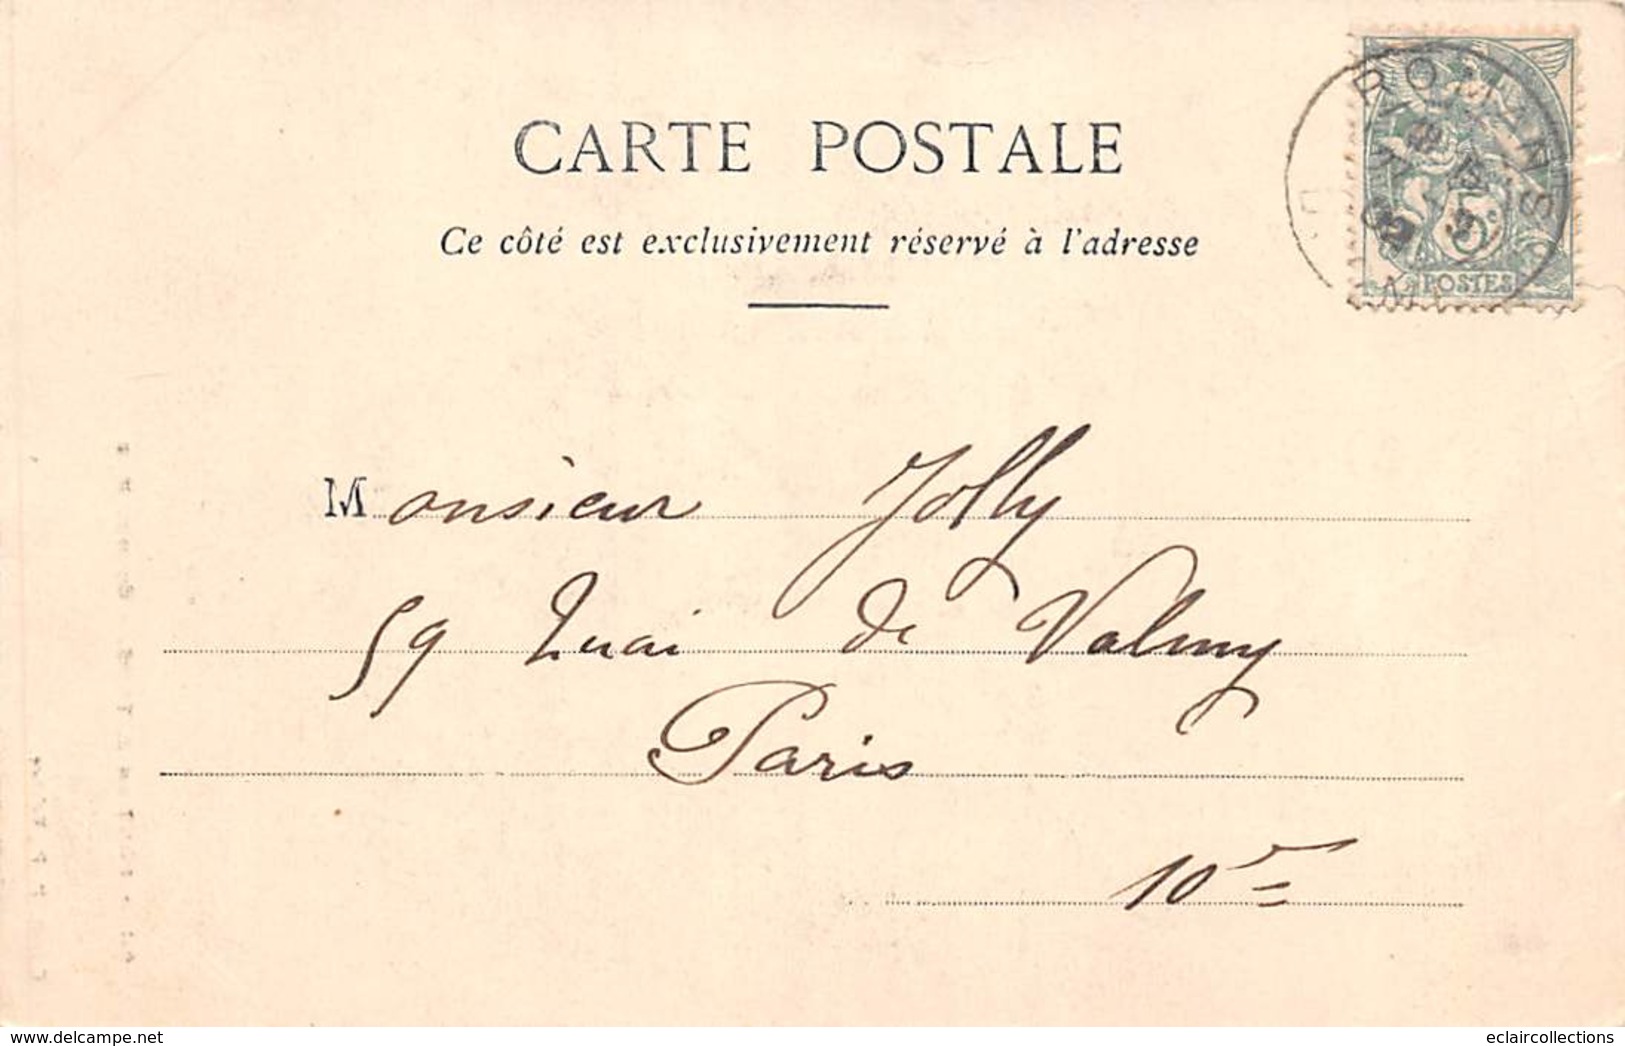 CARTE POSTALE
Ce côté est exclusivement réservé à l'adresse
ROMANS
5c
POSTES
Monsieur Jolly
59 Quai de Valmy
Paris
10e
www.delcampe.net
eclaircollections